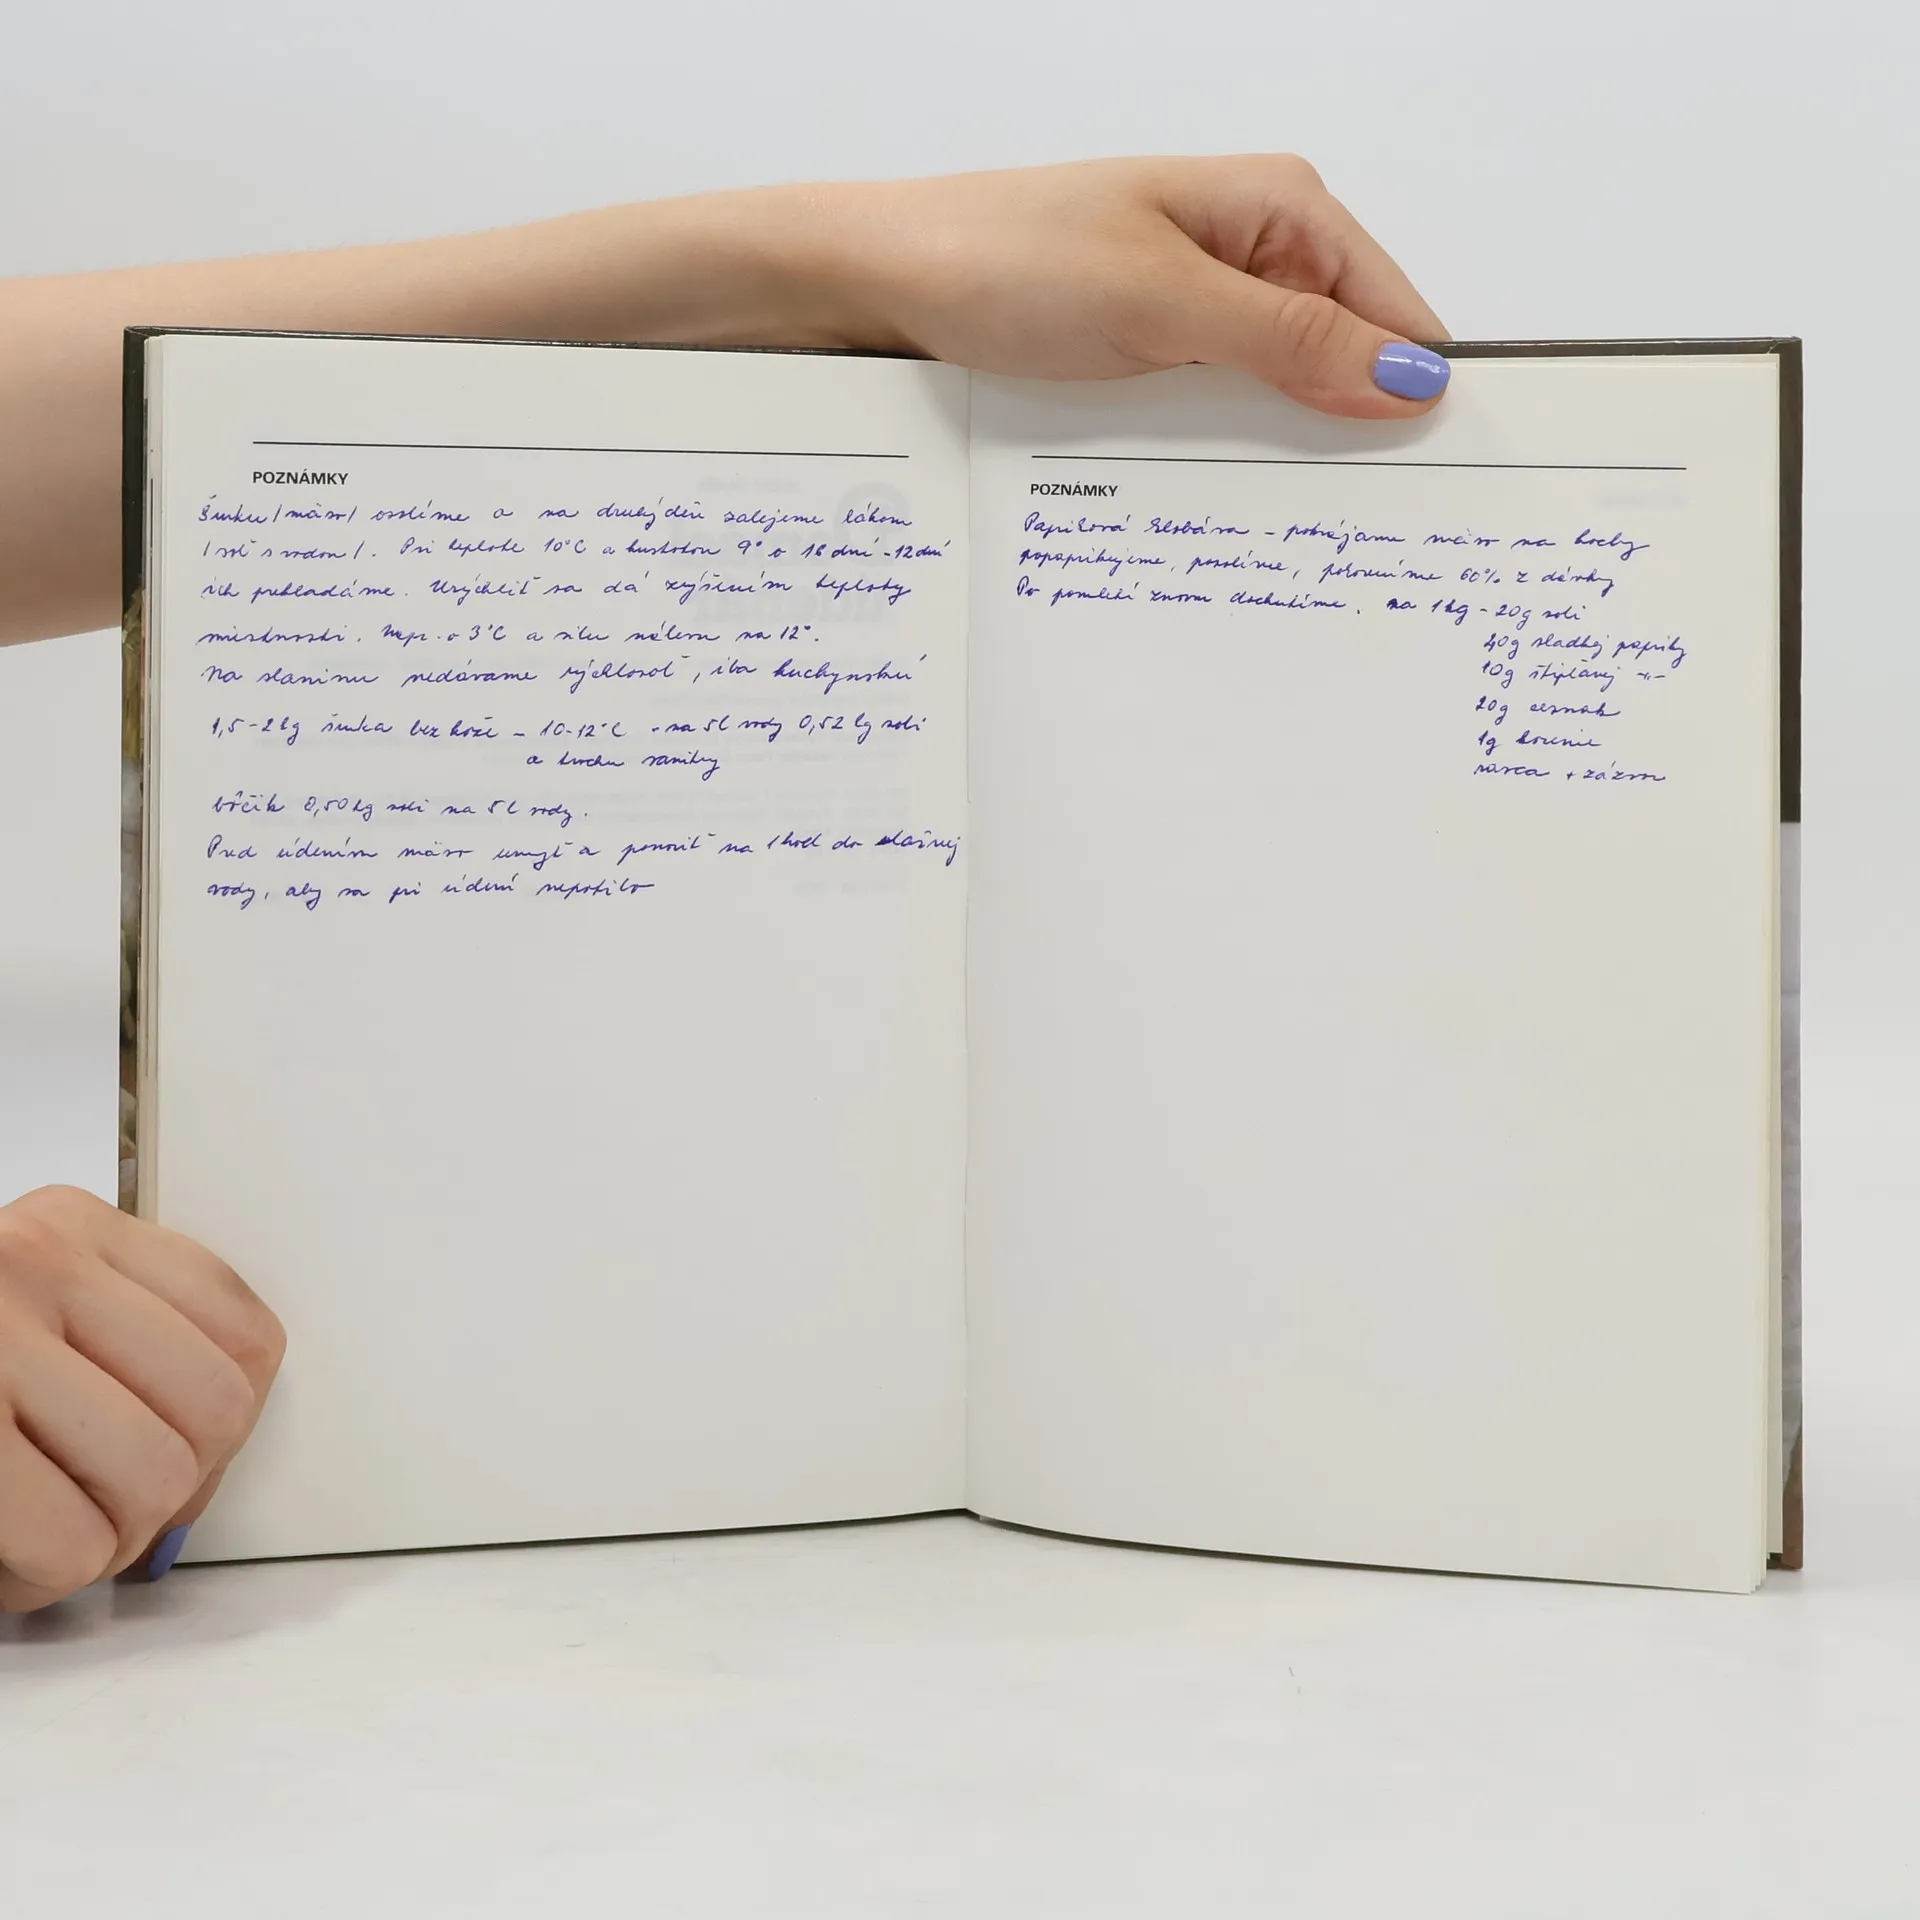 POZNÁMKY
Šunku /mäso/ osolíme a na druhý deň zalejeme lákom
/soľ s vodou/. Pri teplote 10°C a hustotou 9° o 16 dní - 12 dní
ich prekladáme. Urýchliť sa dá zvýšením teploty
miestnosti. Napr. o 3°C a silu nálevu na 12°.
Na slaninu nedávame rýchlosoľ, iba kuchynskú
1,5-2 kg šunka bez kože - 10-12°C - na 5l vody 0,52 kg soli
a trochu sanitry
bôčik 0,50 kg soli na 5l vody.
Pred údením mäso umyť a ponoriť na 1 hod do vlažnej
vody, aby sa pri údení nepotilo
POZNÁMKY
Papriková klobása - pokrájame mäso na kocky
popaprikujeme, posolíme, pokoreníme 60% z dávky
Po pomletí znovu dochutíme. na 1kg - 20g soli
20g sladkej papriky
10g štipľavej -"-
20g cesnak
1g korenie
rasca + zázvor